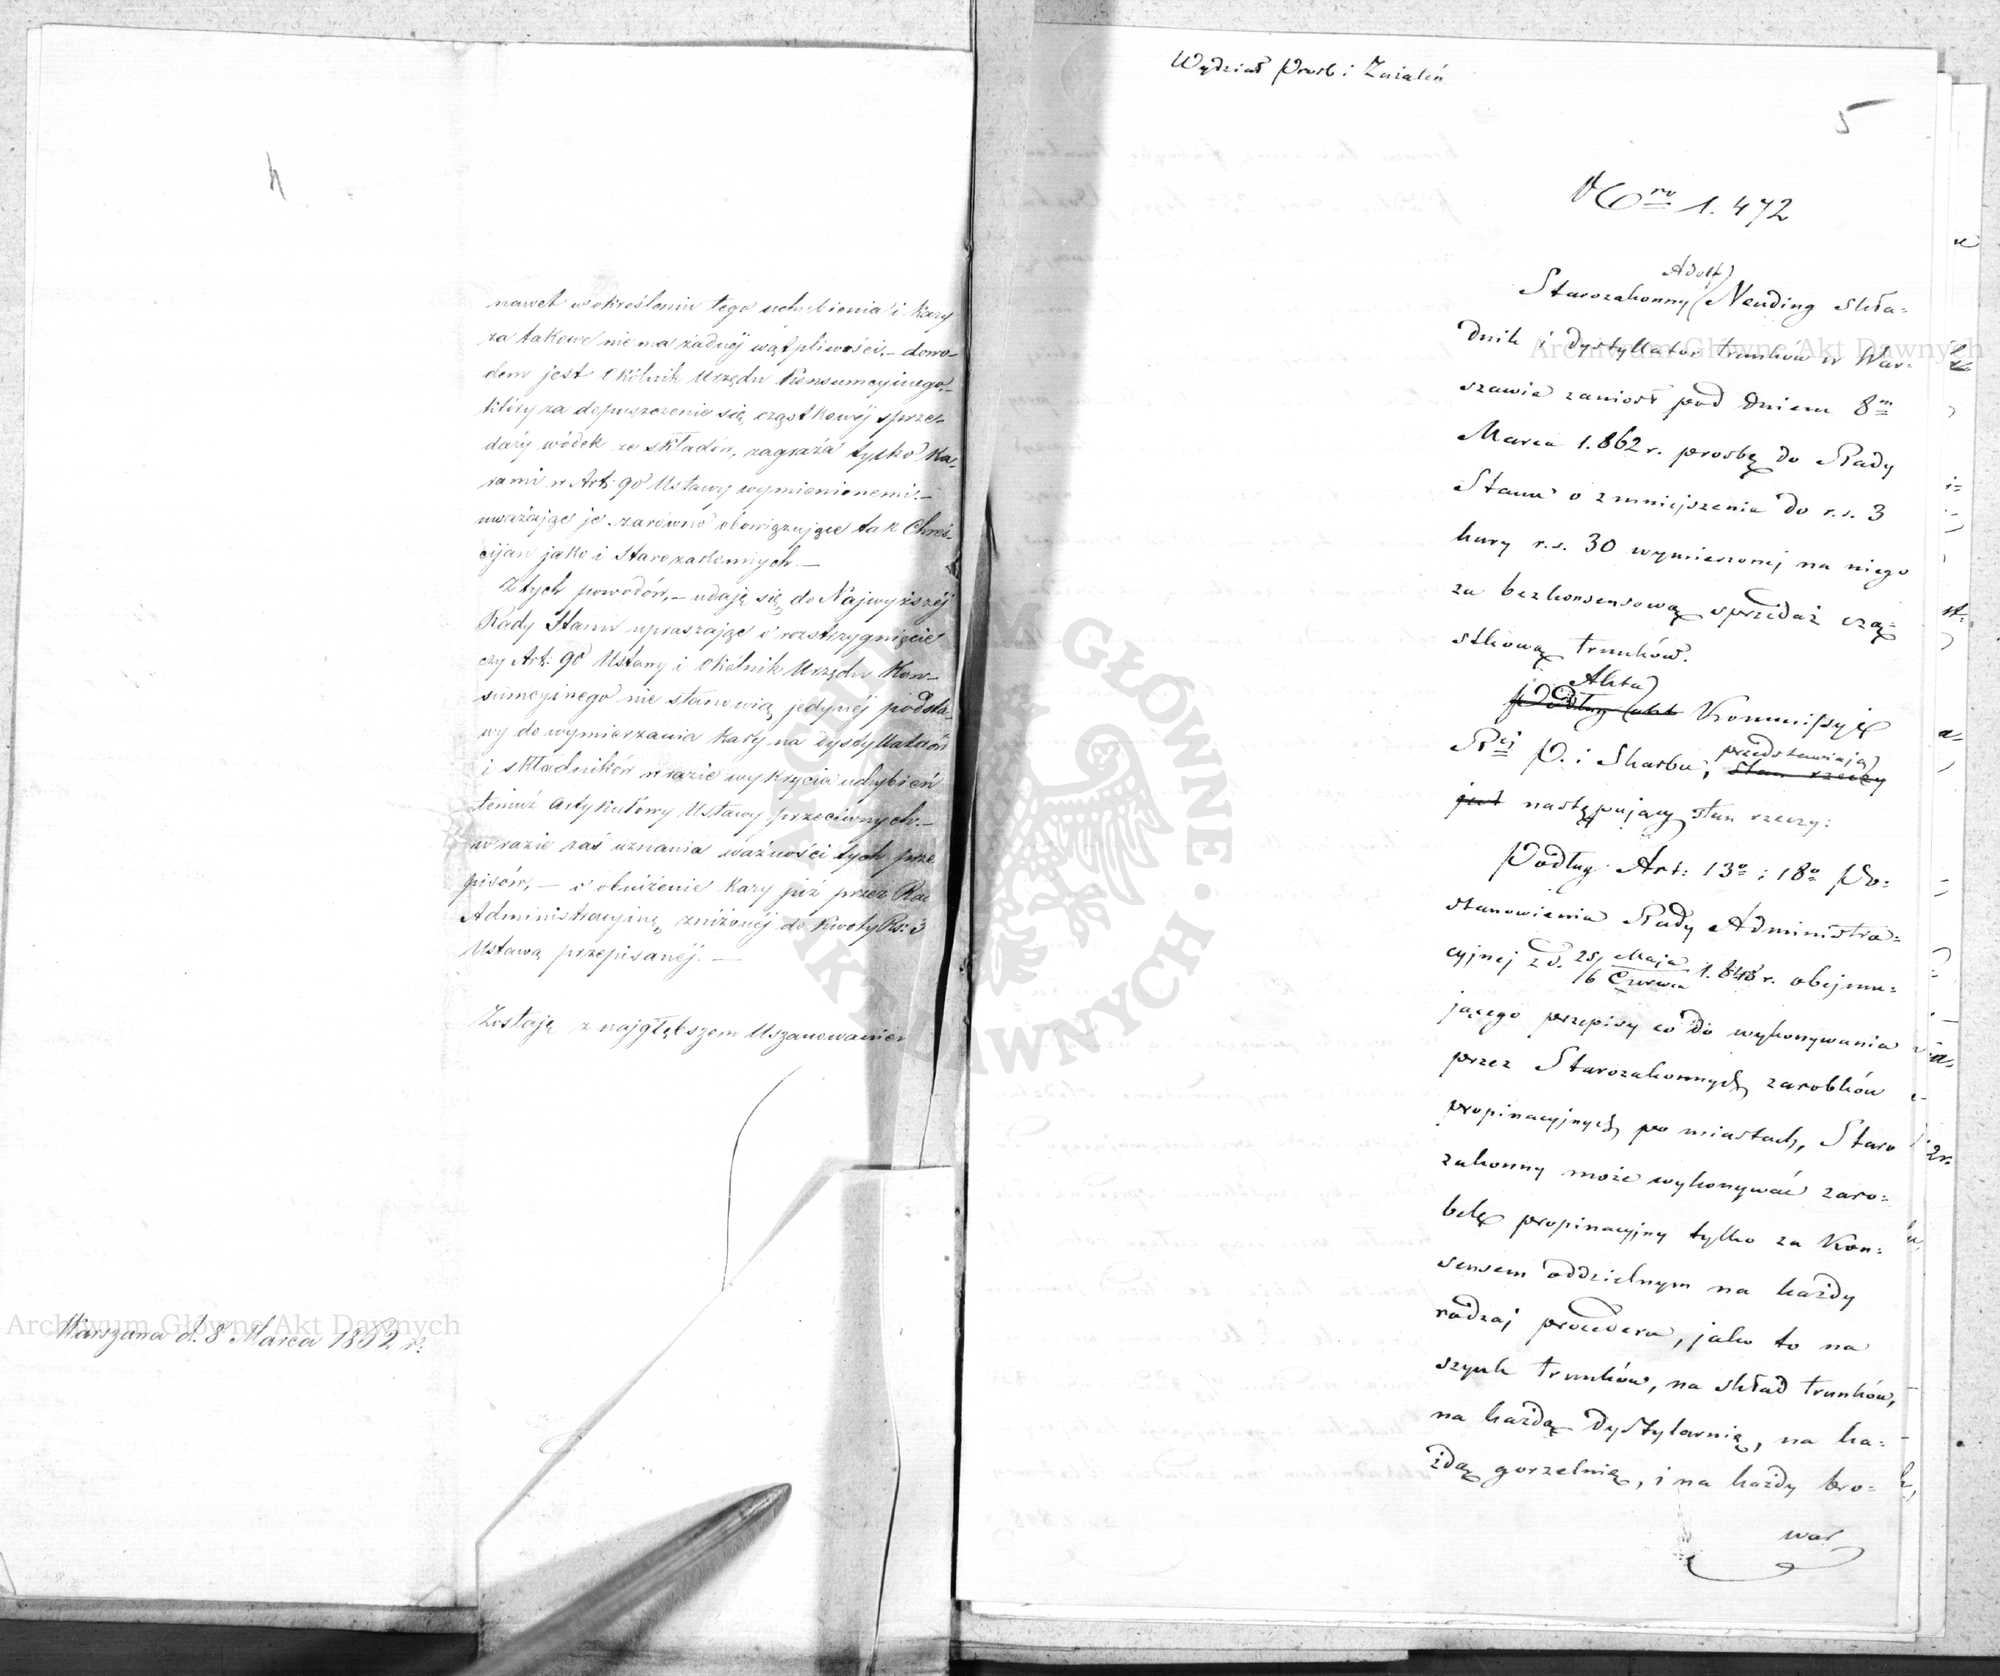 4
nawet w określeniu tego uchybienia i kary
za takowe niema żadnéj wątpliwości, – dowo-
dem jest Okólnik Urzędu Konsumcyjnego,
który za dopuszczenie się cząstkowéj sprze-
daży wódek ze składów, zagraża tylko ka-
rami w Art: 90 Ustawy wymienionemi. –
uważając je zarówno obowiązujące tak Chrześ-
cijan jako i Starozakonnych. –
Z tych powodów, – udaję się do Najwyższéj
Rady Stanu upraszając o rozstrzygnięcie
czy Art: 90 Ustawy i Okólnik Urzędu Kon-
sumcyjnego nie stanowią jedynéj podsta-
wy do wymierzania kary na Dystyllatorów
i składników w razie wykrycia uchybień
temuż Artykułowy Ustawy przeciwnych. –
w razie zaś uznania ważności tych prze
pisów, – o obniżenie kary już przez Radę
Administracyjną zniżonéj do kwoty Rs: 3
Ustawą przepisanéj. –
Zostaję z najgłębszem Uszanowaniem
Warszawa d. 8 Marca 1862 r:
Wydział Prośb i Zażaleń
5
Nro 1.472
Adolf
Starozakonny Neuding Skła=
dnik i dystyllator trunków w War=
szawie zaniosł pod dniem 8m
Marca 1.862 r. prośbę do Rady
Stanu o zmniejszenie do r.s. 3
kary r.s. 30 wymierzonej na niego
za bezkonsensową sprzedaż czą=
stkową trunków.
Akta
Podług akt Kommissyi
Rej P. i Skarbu, przedstawiają
stan rzeczy
jest następujący stan rzeczy:
Podług Art: 13o i 18o Po=
stanowienia Rady Administra=
cyjnej z d. 25 Maja
/6 Czerwca 1.848 r. obejmu=
jącego przepisy co do wykonywania
przez Starozakonnych zarobków
propinacyjnych po miastach, Staro
zakonny może wykonywać zaro=
bek propinacyjny tylko za Kon=
sensem oddzielnym na każdy
rodzaj procederu, jako to na
szynk trunków, na skład trunków,
na każdą Dystylarnię, na ka=
żdą gorzelnię, i na każdy bro=
war
Archiwum Główne Akt Dawnych
Archiwum Główne Akt Dawnych
ARCHIWUM GŁÓWNE · AKT DAWNYCH ·